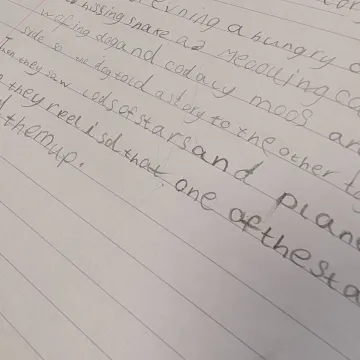 erning a hungry
hissing snare a2 meoouing ca
wofing dog and codacy moos an
side so the dog told a story to the other
Then they saw lods of stars and plan
they reelisd that one of the sta
them up.